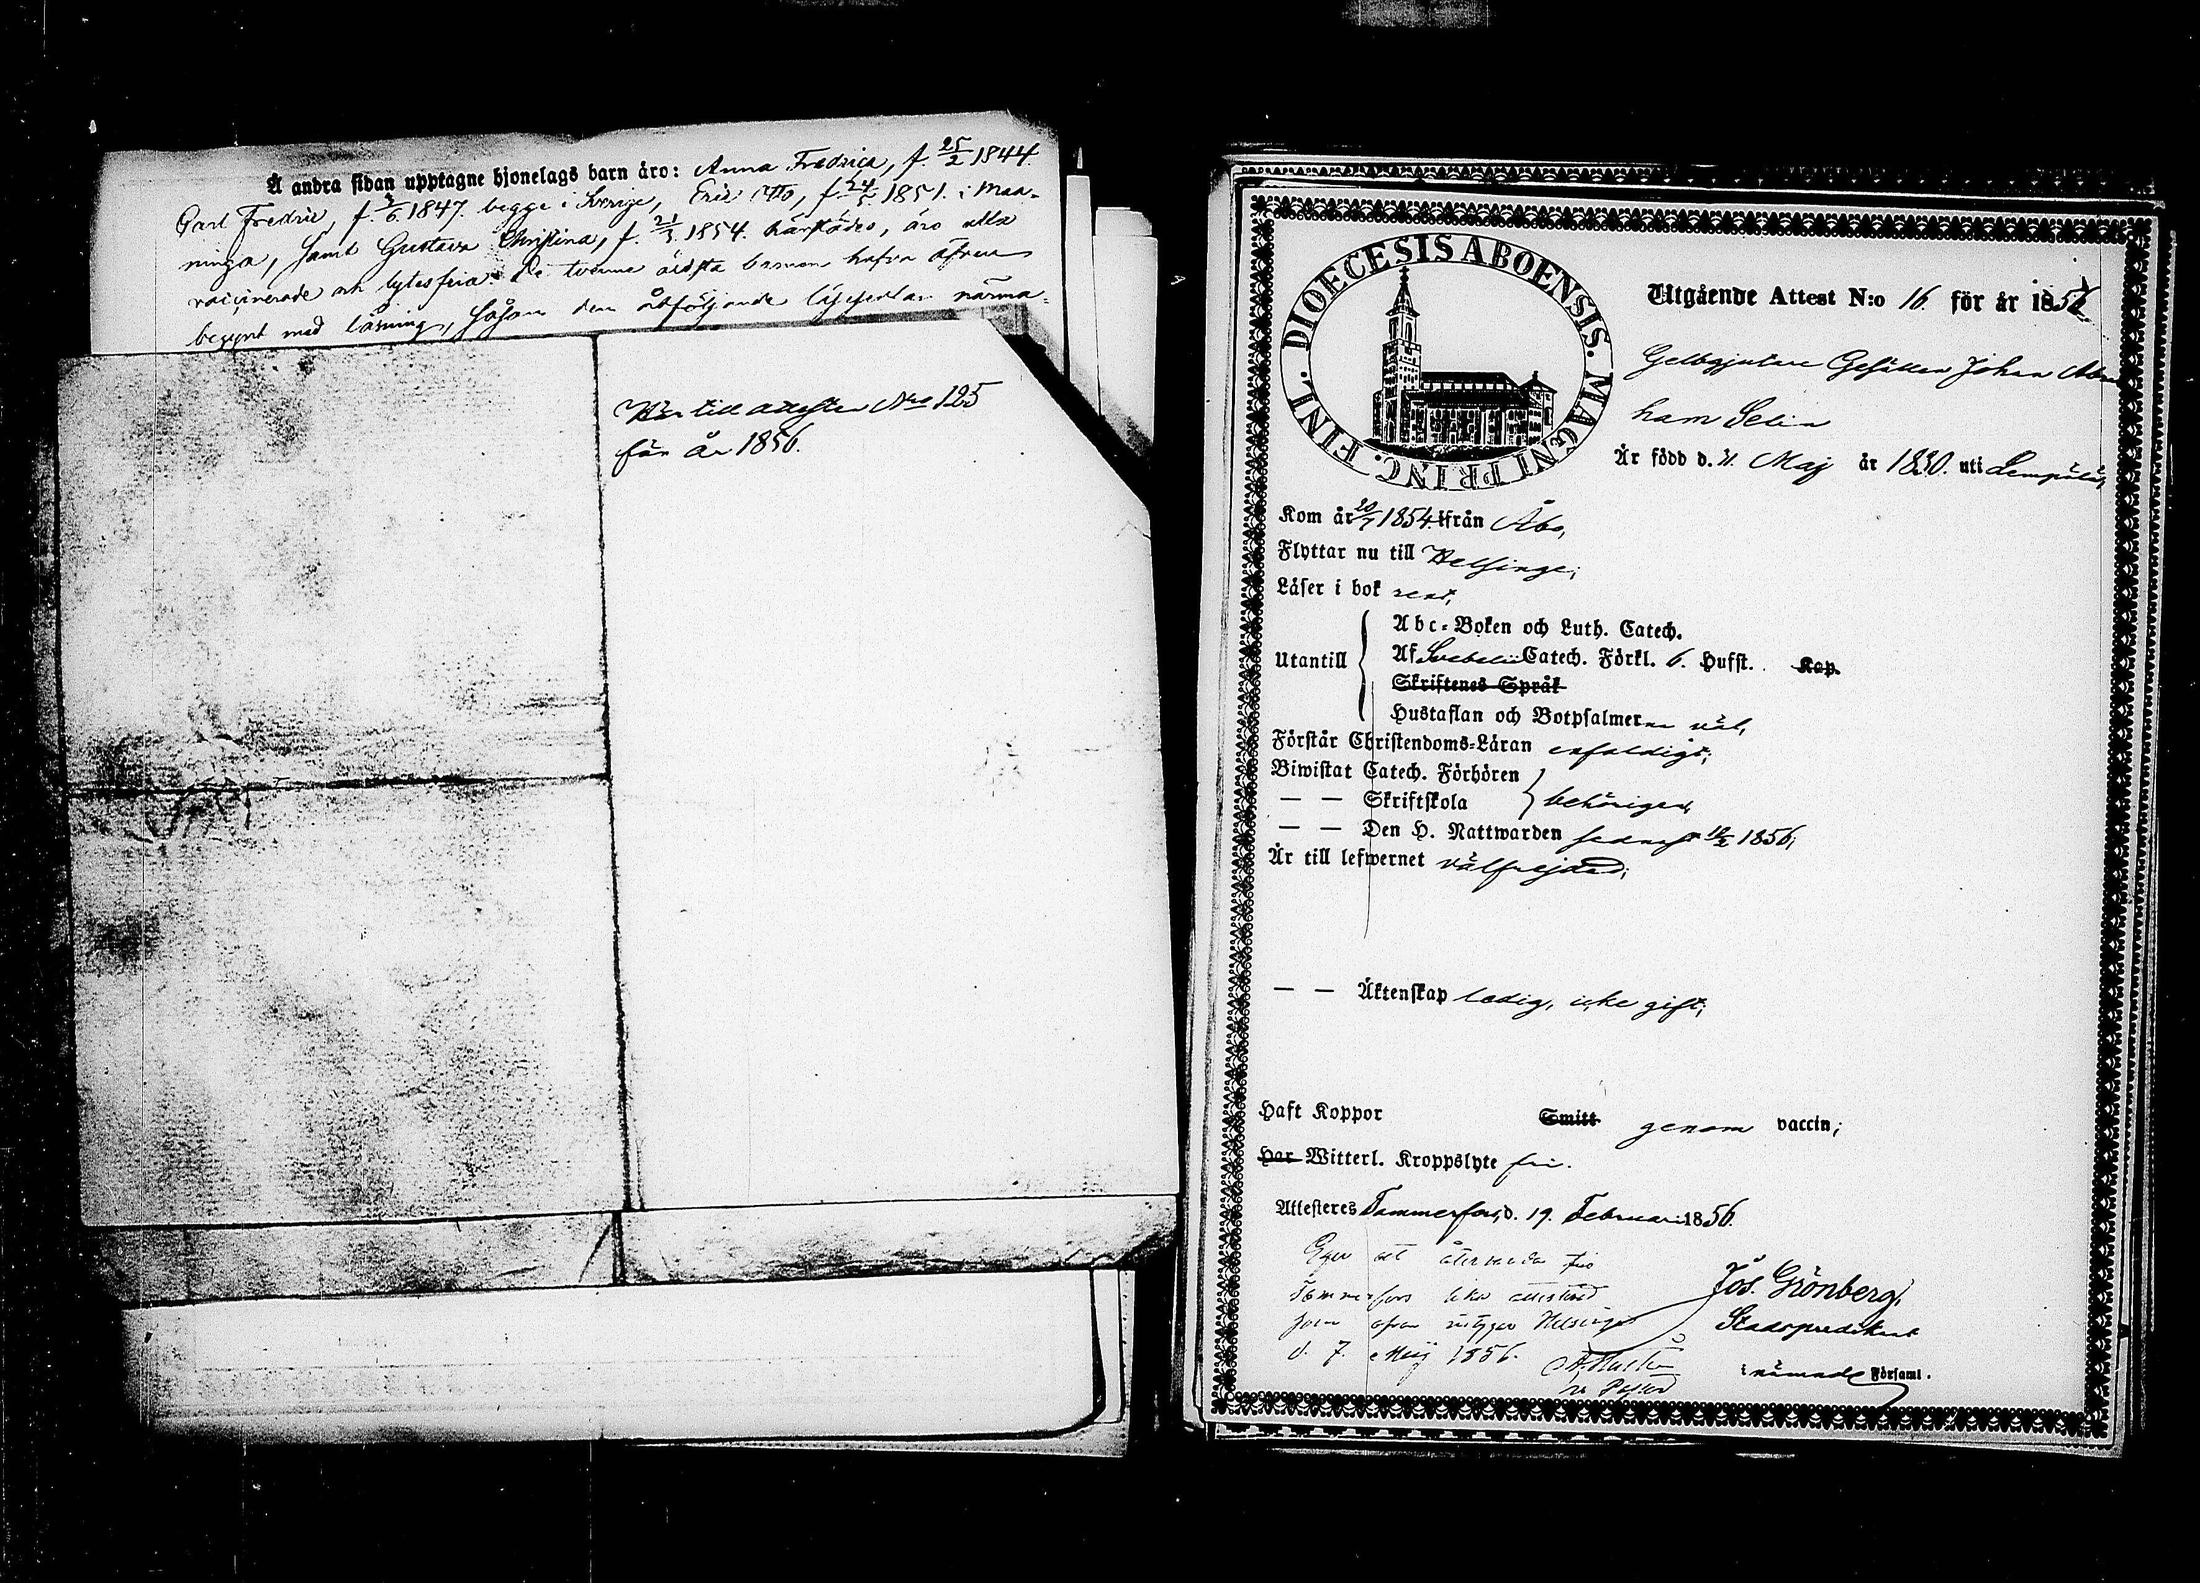 Å andra sidan upptagne hjonelags barn äro: Anna Fredrica, f. 25/2 1844.
Carl Fredric, f. /6 1847. begge i Sverige, Eric Otto, f. 24/5 1851. i Maa-
ninga, samt Gustava Christina, f. 21/3 1854. härstädes, äro alla
vaccinerade och lytesfria. De tvenne äldsta barnen hafva äfven
begynt med läsning, såsom den åtföljande läsesedlar närma-
Hör till attesten No 125
för år 1856.
DIOECESIS ABOENSIS. MAGNI PRINC. FINL.
Utgående Attest N:o 16. för år 1856
Gelbgjutare Gesällen Johan Abra
ham Selin
Är född d. 31. Maj år 1830. uti Lempälä,
Kom år 20/7 1854. ifrån Åbo,
Flyttar nu till Helsinge;
Läser i bok rent,
Abc-Boken och Luth. Catech.
Utantill Af Svebelii Catech. Förkl. 6. Hufst. Kap.
Skriftenes Språk
Hustaflan och Botpsalmerna väl,
Förstår Christendoms-Läran enfaldigt;
Biwistat Catech. Förhören
— — Skriftskola behörigen,
— — Den H. Nattwarden sednast 10/2 1856;
Är till lefwernet välfrejdad;
— — Äktenskap ledig, icke gift;
Haft Koppor Smitt genom vaccin;
Har Witterl. Kroppslyte fri.
Attesteres Tammerfors, d. 19. Februari 1856.
Eger att återvända till
Tammerfors
Helsinge
d. 7. Maij 1856.
Jos. Grönberg,
Stadspredikant
i nämnde Församl.